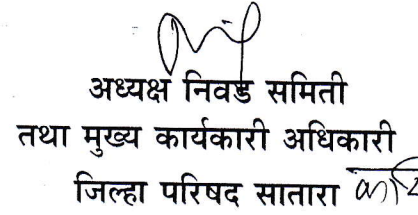 अध्यक्ष निवड समिती
तथा मुख्य कार्यकारी अधिकारी
जिल्हा परिषद सातारा